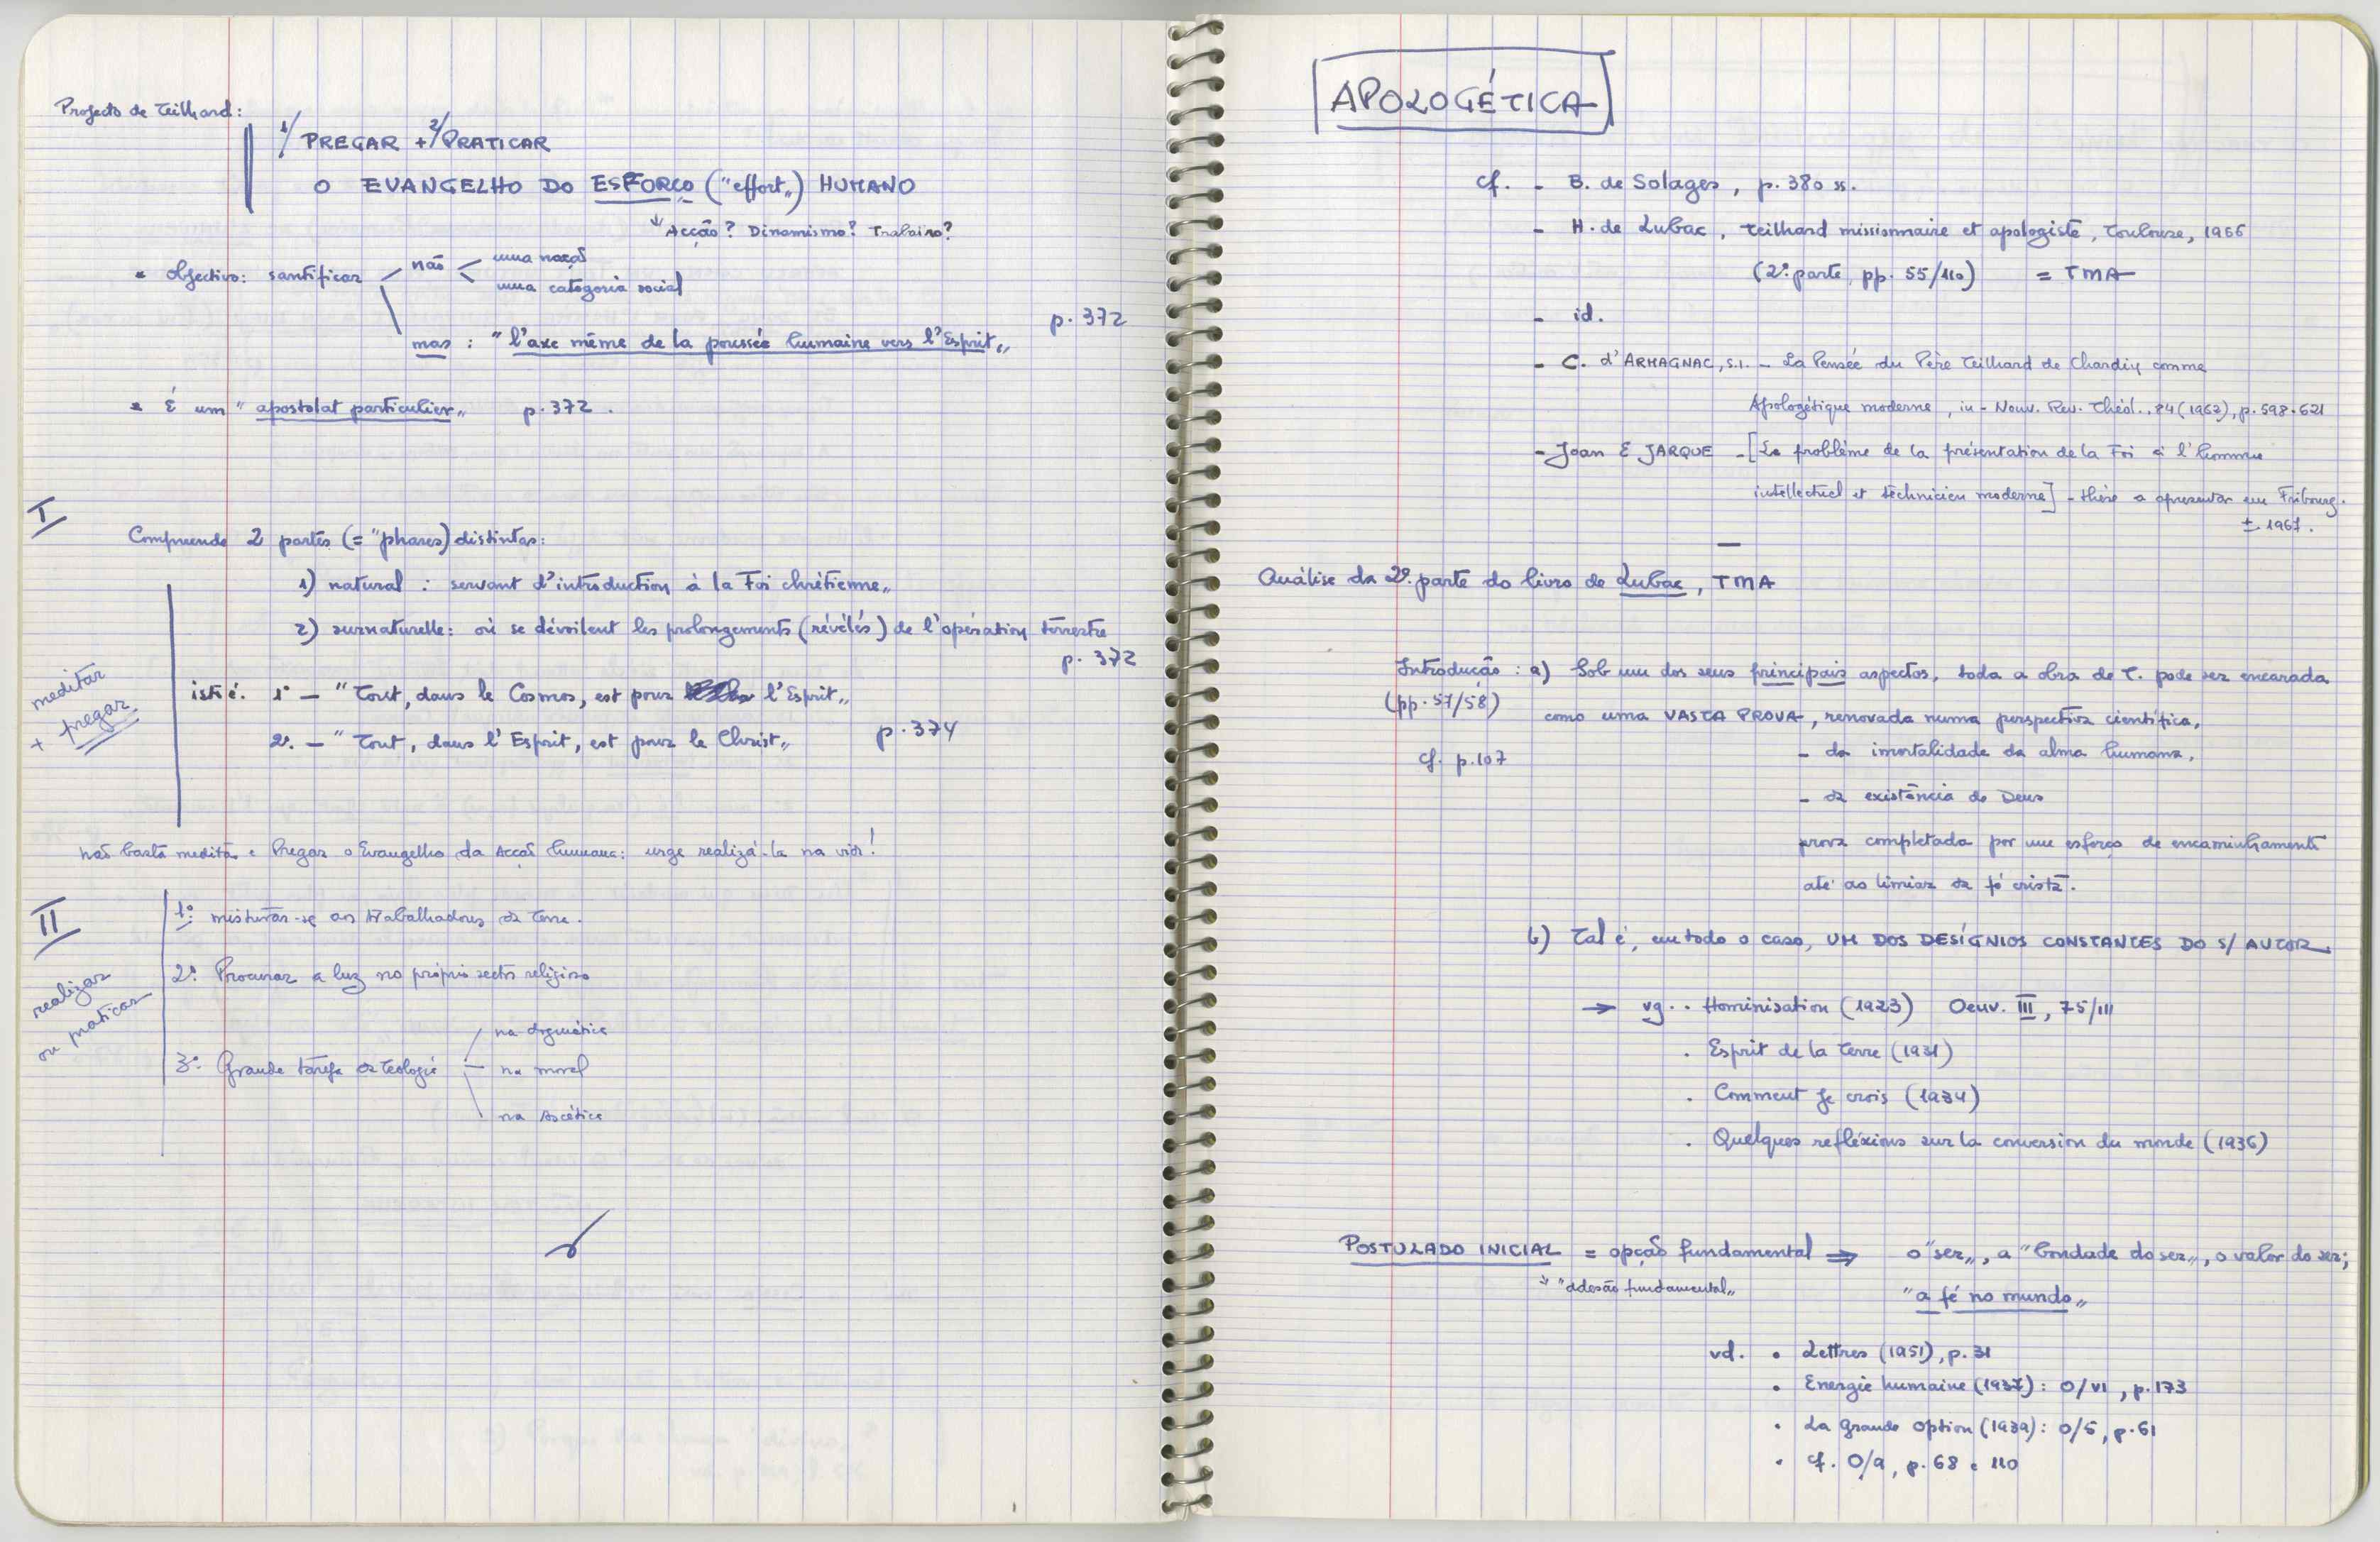 Projecto de Teilhard:
1/ PREGAR + 2/ PRATICAR
O EVANGELHO DO ESFORÇO ("effort„) HUMANO
↓ Acção? Dinamismo? Trabalho?
• Objectivo: santificar
não
uma nação
uma categoria social
p. 372
mas : "l'axe même de la poussée humaine vers l'Esprit„
• É um "apostolat particulier„ p. 372.
I
Compreende 2 partes (= "phases) distintas:
1) natural : servant d'introduction à la Foi chrétienne„
2) surnaturelle: où se dévoilent les prolongements (révélés) de l'opération terrestre
p. 372
meditar
+ pregar
isto é. 1º — "Tout, dans le Cosmos, est pour l'Esprit„
2º. — "Tout, dans l'Esprit, est pour le Christ„ p. 374
não basta meditar e Pregar o Evangelho da Acção humana: urge realizá-la na vida!
II
realizar
ou praticar
1º: misturar-se aos trabalhadores da Terra.
2º. Procurar a luz no próprio sector religioso
3º. Grande tarefa da Teologia
na dogmática
na moral
na Ascética
APOLOGÉTICA
Cf. - B. de Solages, p. 380 ss.
- H. de Lubac, Teilhard missionnaire et apologiste, Toulouse, 1966
(2ª. parte, pp. 55/110) = TMA
- id.
- C. d'ARMAGNAC, S.I. - La Pensée du Père Teilhard de Chardin comme
Apologétique moderne, in - Nouv. Rev. Théol., 84 (1962), p. 598-621
- Joan E JARQUE - [Le problème de la présentation de la Foi à l'homme
intellectuel et technicien moderne] - thèse a apresentar em Fribourg.
± 1967.
—
Análise da 2ª. parte do livro de Lubac, TMA
Introdução : a) Sob um dos seus principais aspectos, toda a obra de T. pode ser encarada
(pp. 57/58) como uma VASTA PROVA, renovada numa perspectiva científica,
cf. p. 107
- da imortalidade da alma humana,
- da existência de Deus
prova completada por um esforço de encaminhamento
até ao limiar da fé cristã.
b) Tal é, em todo o caso, UM DOS DESÍGNIOS CONSTANTES DO S/ AUTOR
→ vg. . Hominisation (1923) Oeuv. III, 75/111
. Esprit de la Terre (1931)
. Comment je crois (1934)
. Quelques refléxions sur la conversion du monde (1936)
POSTULADO INICIAL = opção fundamental ⇒ o "ser„, a "bondade do ser„, o valor do ser;
↓ "adesão fundamental„
"a fé no mundo„
vd. • Lettres (1951), p. 31
• Energie humaine (1937): O/VI, p. 173
• La grande option (1939): O/5, p. 61
• cf. O/9, p. 68 e 110